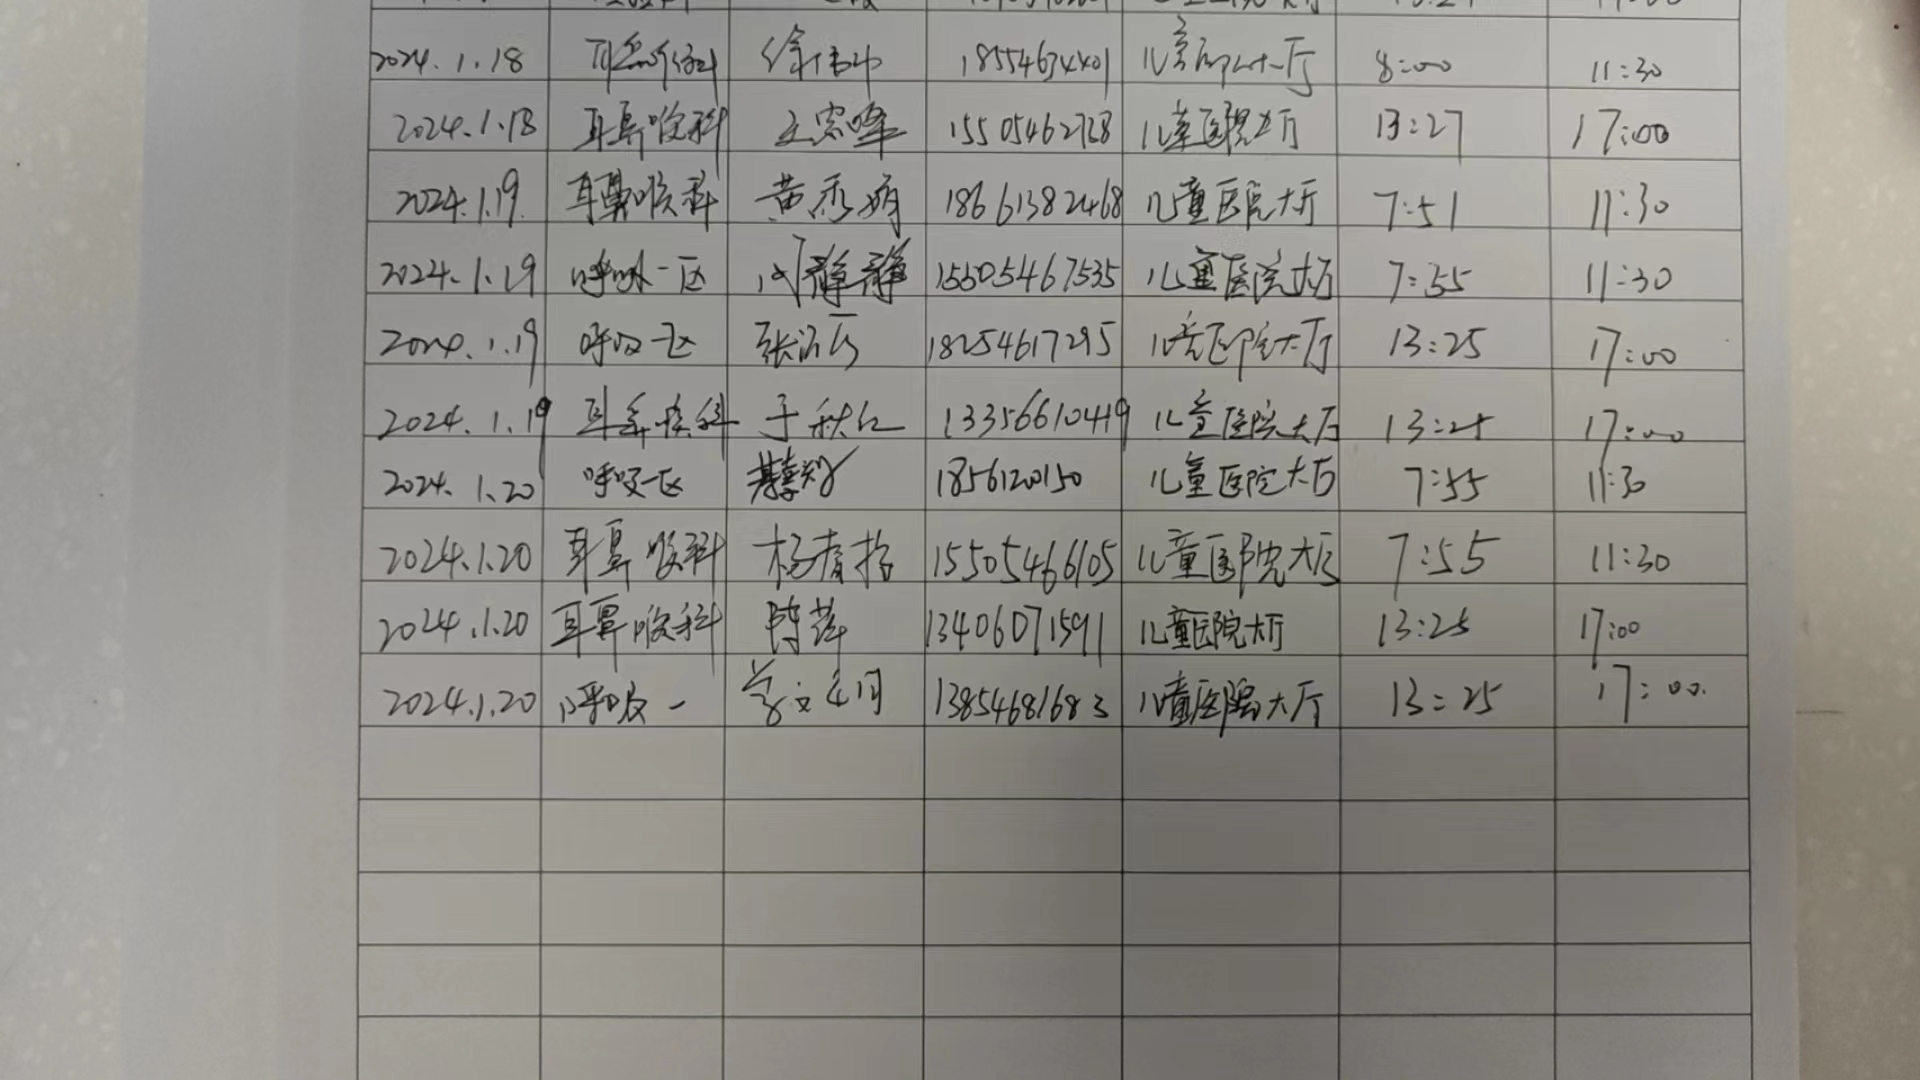 2024.1.18 18554634401 8:00 11:30
2024.1.18 耳鼻喉科 15505462728 儿童医院大厅 13:27 17:00
2024.1.19 耳鼻喉科 黄秀娟 18661382468 儿童医院大厅 7:51 11:30
2024.1.19 呼吸一区 静静 15505467535 儿童医院大厅 7:55 11:30
2024.1.19 呼吸一区 18254617295 儿童医院大厅 13:25 17:00
2024.1.19 耳鼻喉科 于秋红 13356610419 儿童医院大厅 13:25 17:00
2024.1.20 呼吸一区 1856120150 儿童医院大厅 7:55 11:30
2024.1.20 耳鼻喉科 15505466105 儿童医院大厅 7:55 11:30
2024.1.20 耳鼻喉科 陈萍 13406071591 儿童医院大厅 13:25 17:00
2024.1.20 呼吸一 13854681683 儿童医院大厅 13:25 17:00